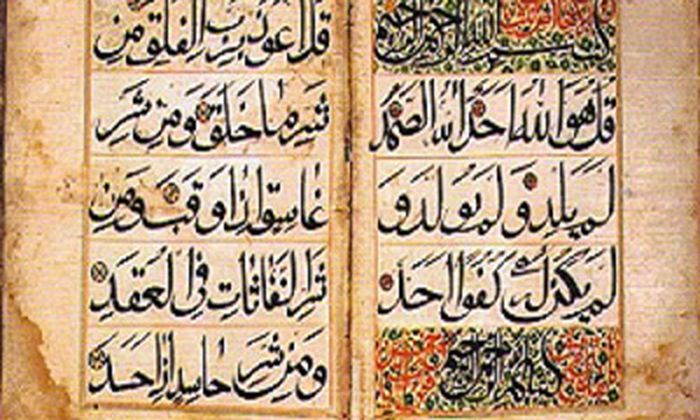 بسم الله الرحمن الرحيم
قل هو الله احد الله الصمد
لم يلد و لم يولد و
لم يكن له كفوا احد
بسم الله الرحمن الرحيم
قل اعوذ برب الفلق من
شر ما خلق و من شر
غاسق اذا وقب و من
شر النفاثات في العقد
و من شر حاسد اذا حسد